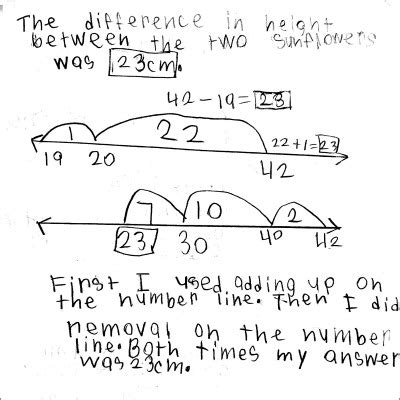 The difference in height
between the two sunflowers
was 23cm.
42 - 19 = 23
1 22 22 + 1 = 23
19 20 42
7 10 2
23 30 40 42
First I used adding up on
the number line. Then I did
removal on the number
line. Both times my answer
was 23cm.